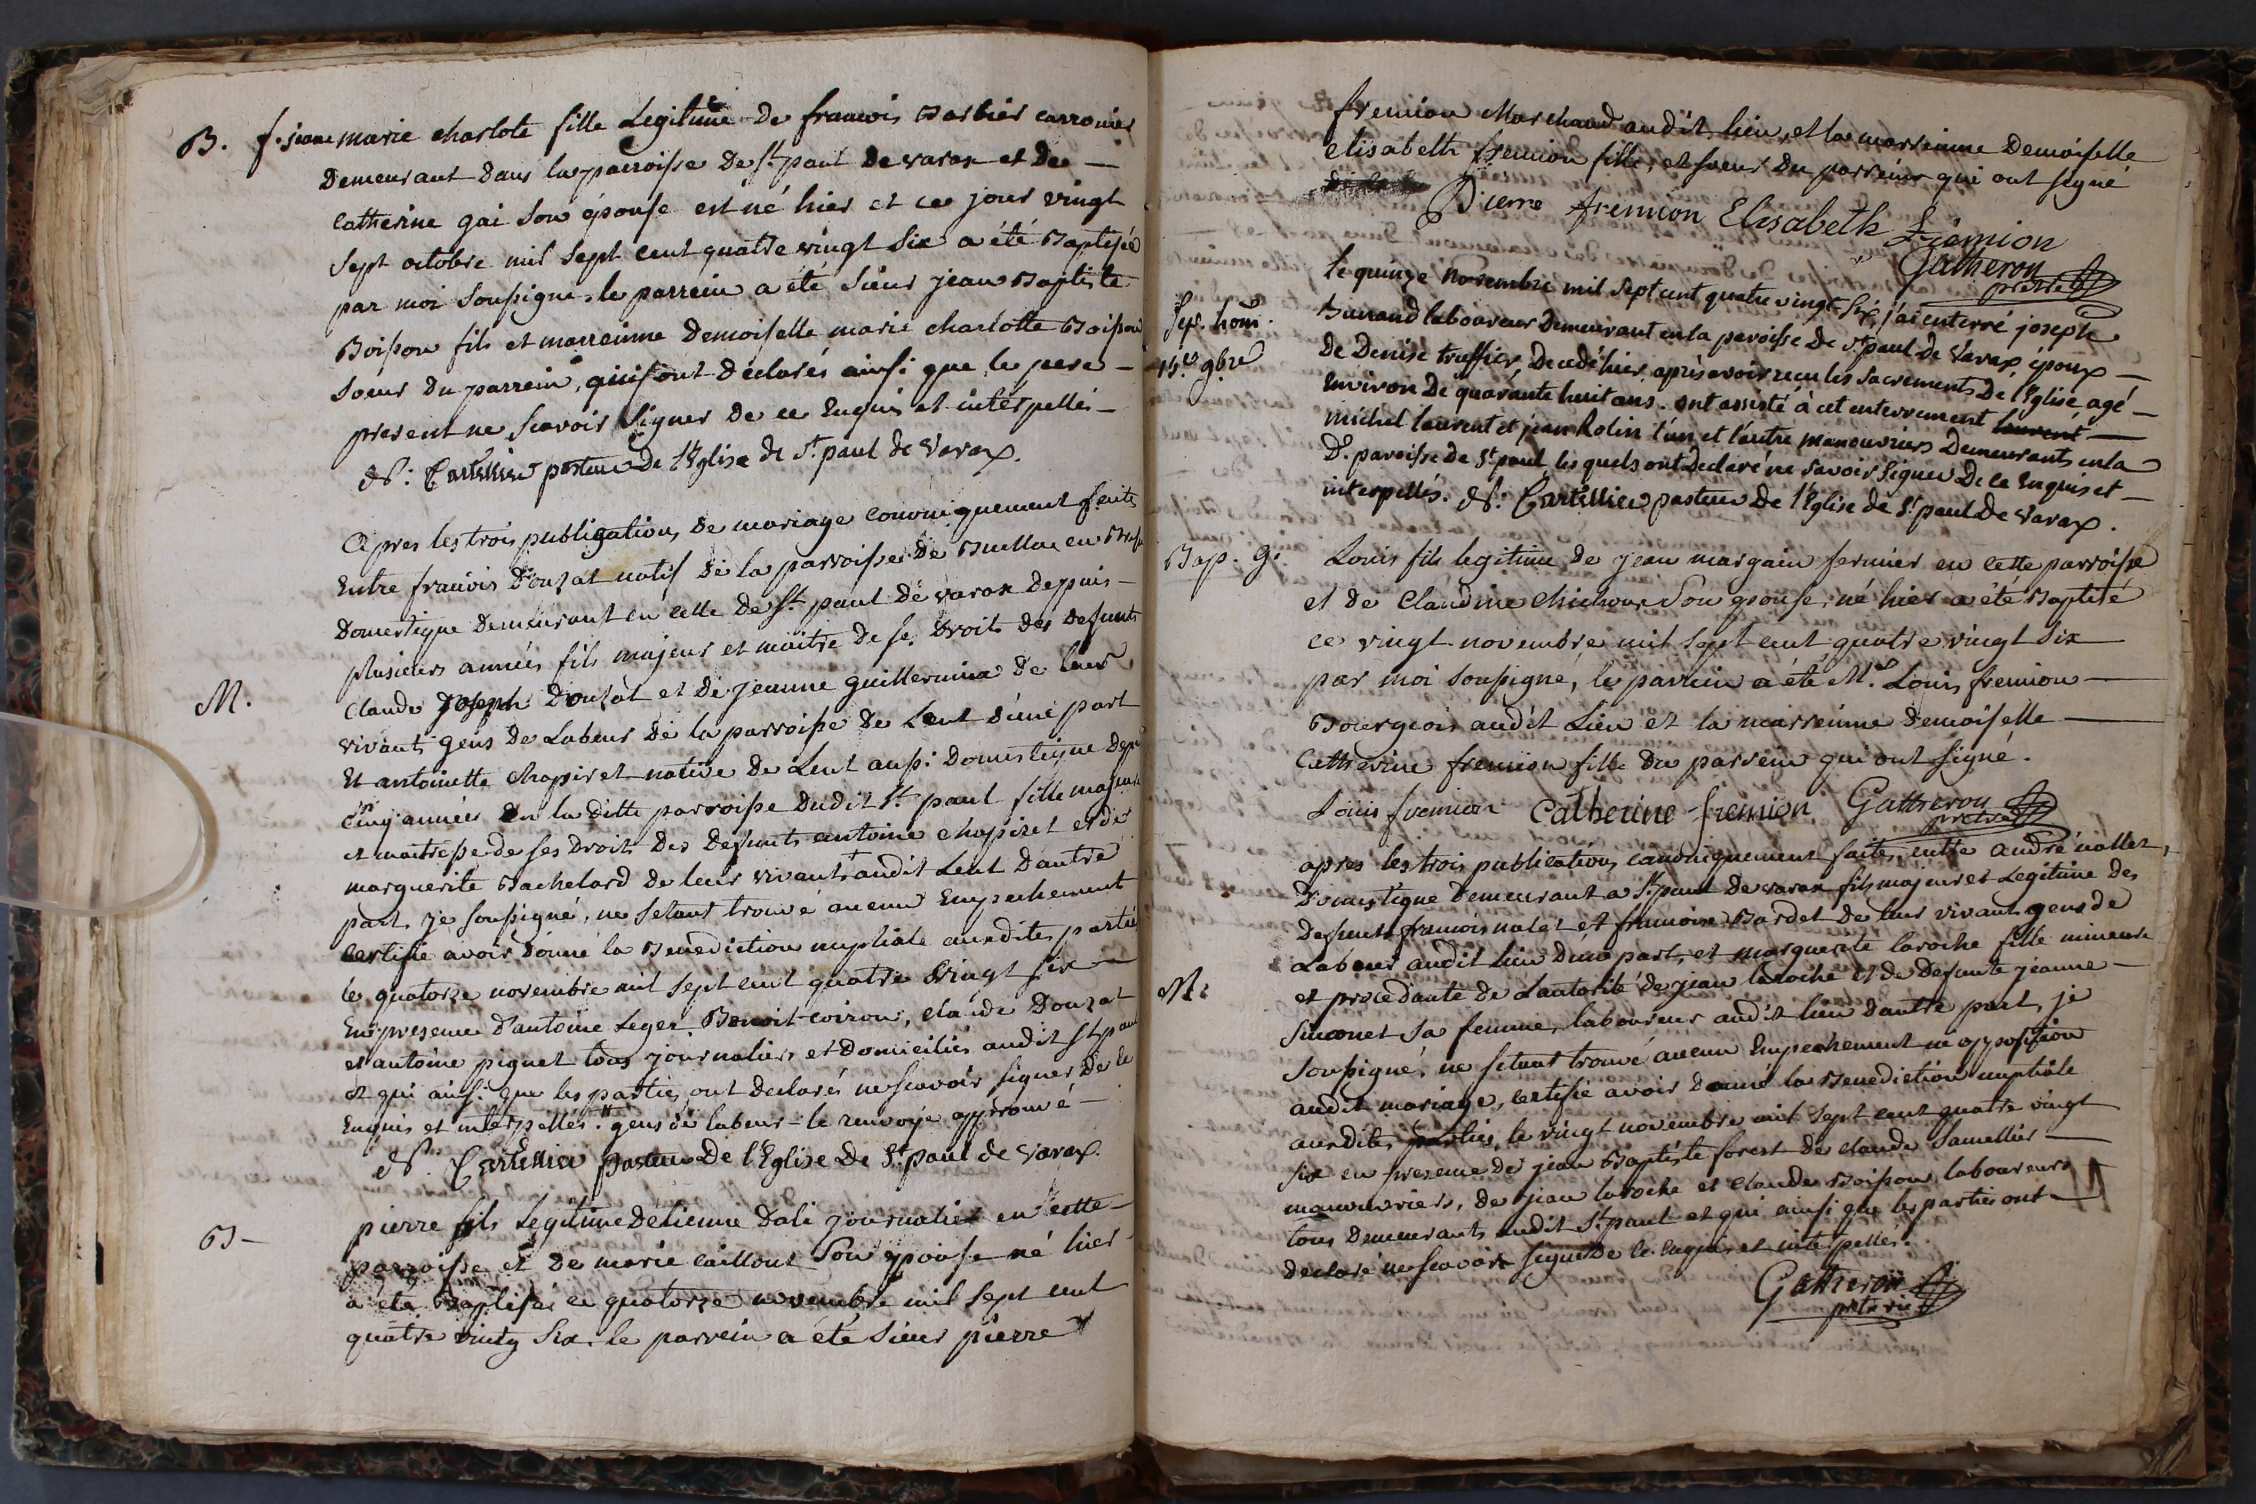 B. f. jeane marie charlote fille Legitime de francois Barbier carronier
Demeurant dans la parroisse de St. paul de varax et de
Catherine gai son épouse est né hier et ce jour vingt
sept octobre mil sept cent quatre vingt six a été Baptisée
par moi Soussigné, le parrein a été sieur jean Baptiste
Boisson fils et marreinne Demoiselle marie charlotte Boisson
soeur du parrein, qui sont déclarés ainsi que le pere
present ne scavoir Signer de ce Enquis et interpellés
Cartellier pasteur de l'Eglise de St. paul de Varax.
Apres les trois publications de mariage canoniquement faites
M.
Entre francois Douzat natif de la parroisse de en
Domestique Demeurant en celle de St. paul de varax depuis
plusieurs années fils majeur et maitre de ses Droits des defunts
Claude Joseph Douzat et de jeanne guillermina de leur
vivants gens de Labeur de la parroisse de Lent d'une part
Et antoinette chapiret native de Lent aussi Domestique depuis
cinq années En la ditte parroisse Dudit St. paul fille majeure
et maitresse de ses Droits Des Defunts antoine chapiret et de
marguerite Bachelard de leur vivant audit Lent Dautre
part, je soussigné, ne s'etant trouvé aucun Empechement
Certifie avoir donné la Benediction nuptiale auxdites parties
le quatorze novembre mil sept cent quatre vingt six
En presence d'antoine Leger, Benoit coiron, claude Douzat
et antoine piguet tous journaliers et Domiciliés audit St. paul
et qui ainsi que les parties ont declarés ne scavoir signer De Ce
Enquis et interpellés. gens de labeur - le renvoye approuvé
Cartellier pasteur De l'Eglise De St. paul de Varax.
B -
pierre fils Legitime detienne Dali journalier en cette
parroisse Et de marie caillout Son épouse né hier
a été Baptisé ce quatorze novembre mil sept cent
quatre vingt Six. le parrein a été sieur pierre
fremion Marchand audit lieu, et la marreinne Demoiselle
elisabeth fremion fille, et soeur du parrein qui ont signé
Pierre fremion Elisabeth Fremion
Gatheron
pretre
Sep. hom.
15e 9bre
le quinze novembre mil sept cent quatre vingt six, j'ai enterré joseph
Burrand laboureur Demeurant en la paroisse De St. paul de Varax, époux
De Denise truffier, Decedé hier, après avoir reçu les Sacrements De l'Eglise agé
Environ De quarante huit ans. ont assisté à cet enterrement laurent
michel laurent et jean Rolin l'un et l'autre manouvriers Demeurants en la
De. paroisse de St. paul lesquels ont Declaré ne savoir Signer De ce Enquis et
interpellés. Cartellier pasteur De l'Eglise de St. paul de Varax.
Bap. g.
Louis fils legitime de jean margain fermier en cette parroisse
et de Claudine chichoux Son épouse, né hier a été Baptisé
ce vingt novembre mil sept cent quatre vingt Six
par moi soussigné, le parrein a été Mr. Louis fremion
Bourgeois audit Lieu et la marreinne Demoiselle
Catherine fremion fille du parrein qui ont signé.
Louis fremion Catherine fremion Gattheron
pretre
M.
apres les trois publications canoniquement faites entre andré nallet,
Domestique Demeurant a St. paul De varax fils majeur et Legitime des
Defunts francois nalet et francoise Bardet de leur vivant gens de
Labeur audit Lieu Dune part, et marguerite laroche fille mineure
et procedante de Lautorité de jean laroche et de defunte jeanne
Simonet sa femme, laboureur audit lieu Dautre part, je
Soussigné, ne setant trouvé aucun Empechement ni opposition
audit mariage, certifie avoir donné la Benediction nuptiale
auxdites parties le vingt novembre mil sept cent quatre vingt
six en presence De jean Baptiste forest De claude Samellier
manouvriers, de jean laroche et claude Boisson laboureurs
tous Demeurants audit St. paul et qui ainsi que les parties ont
declaré ne scavoir signer De ce Enquis et interpellés.
Gattheron
pretre